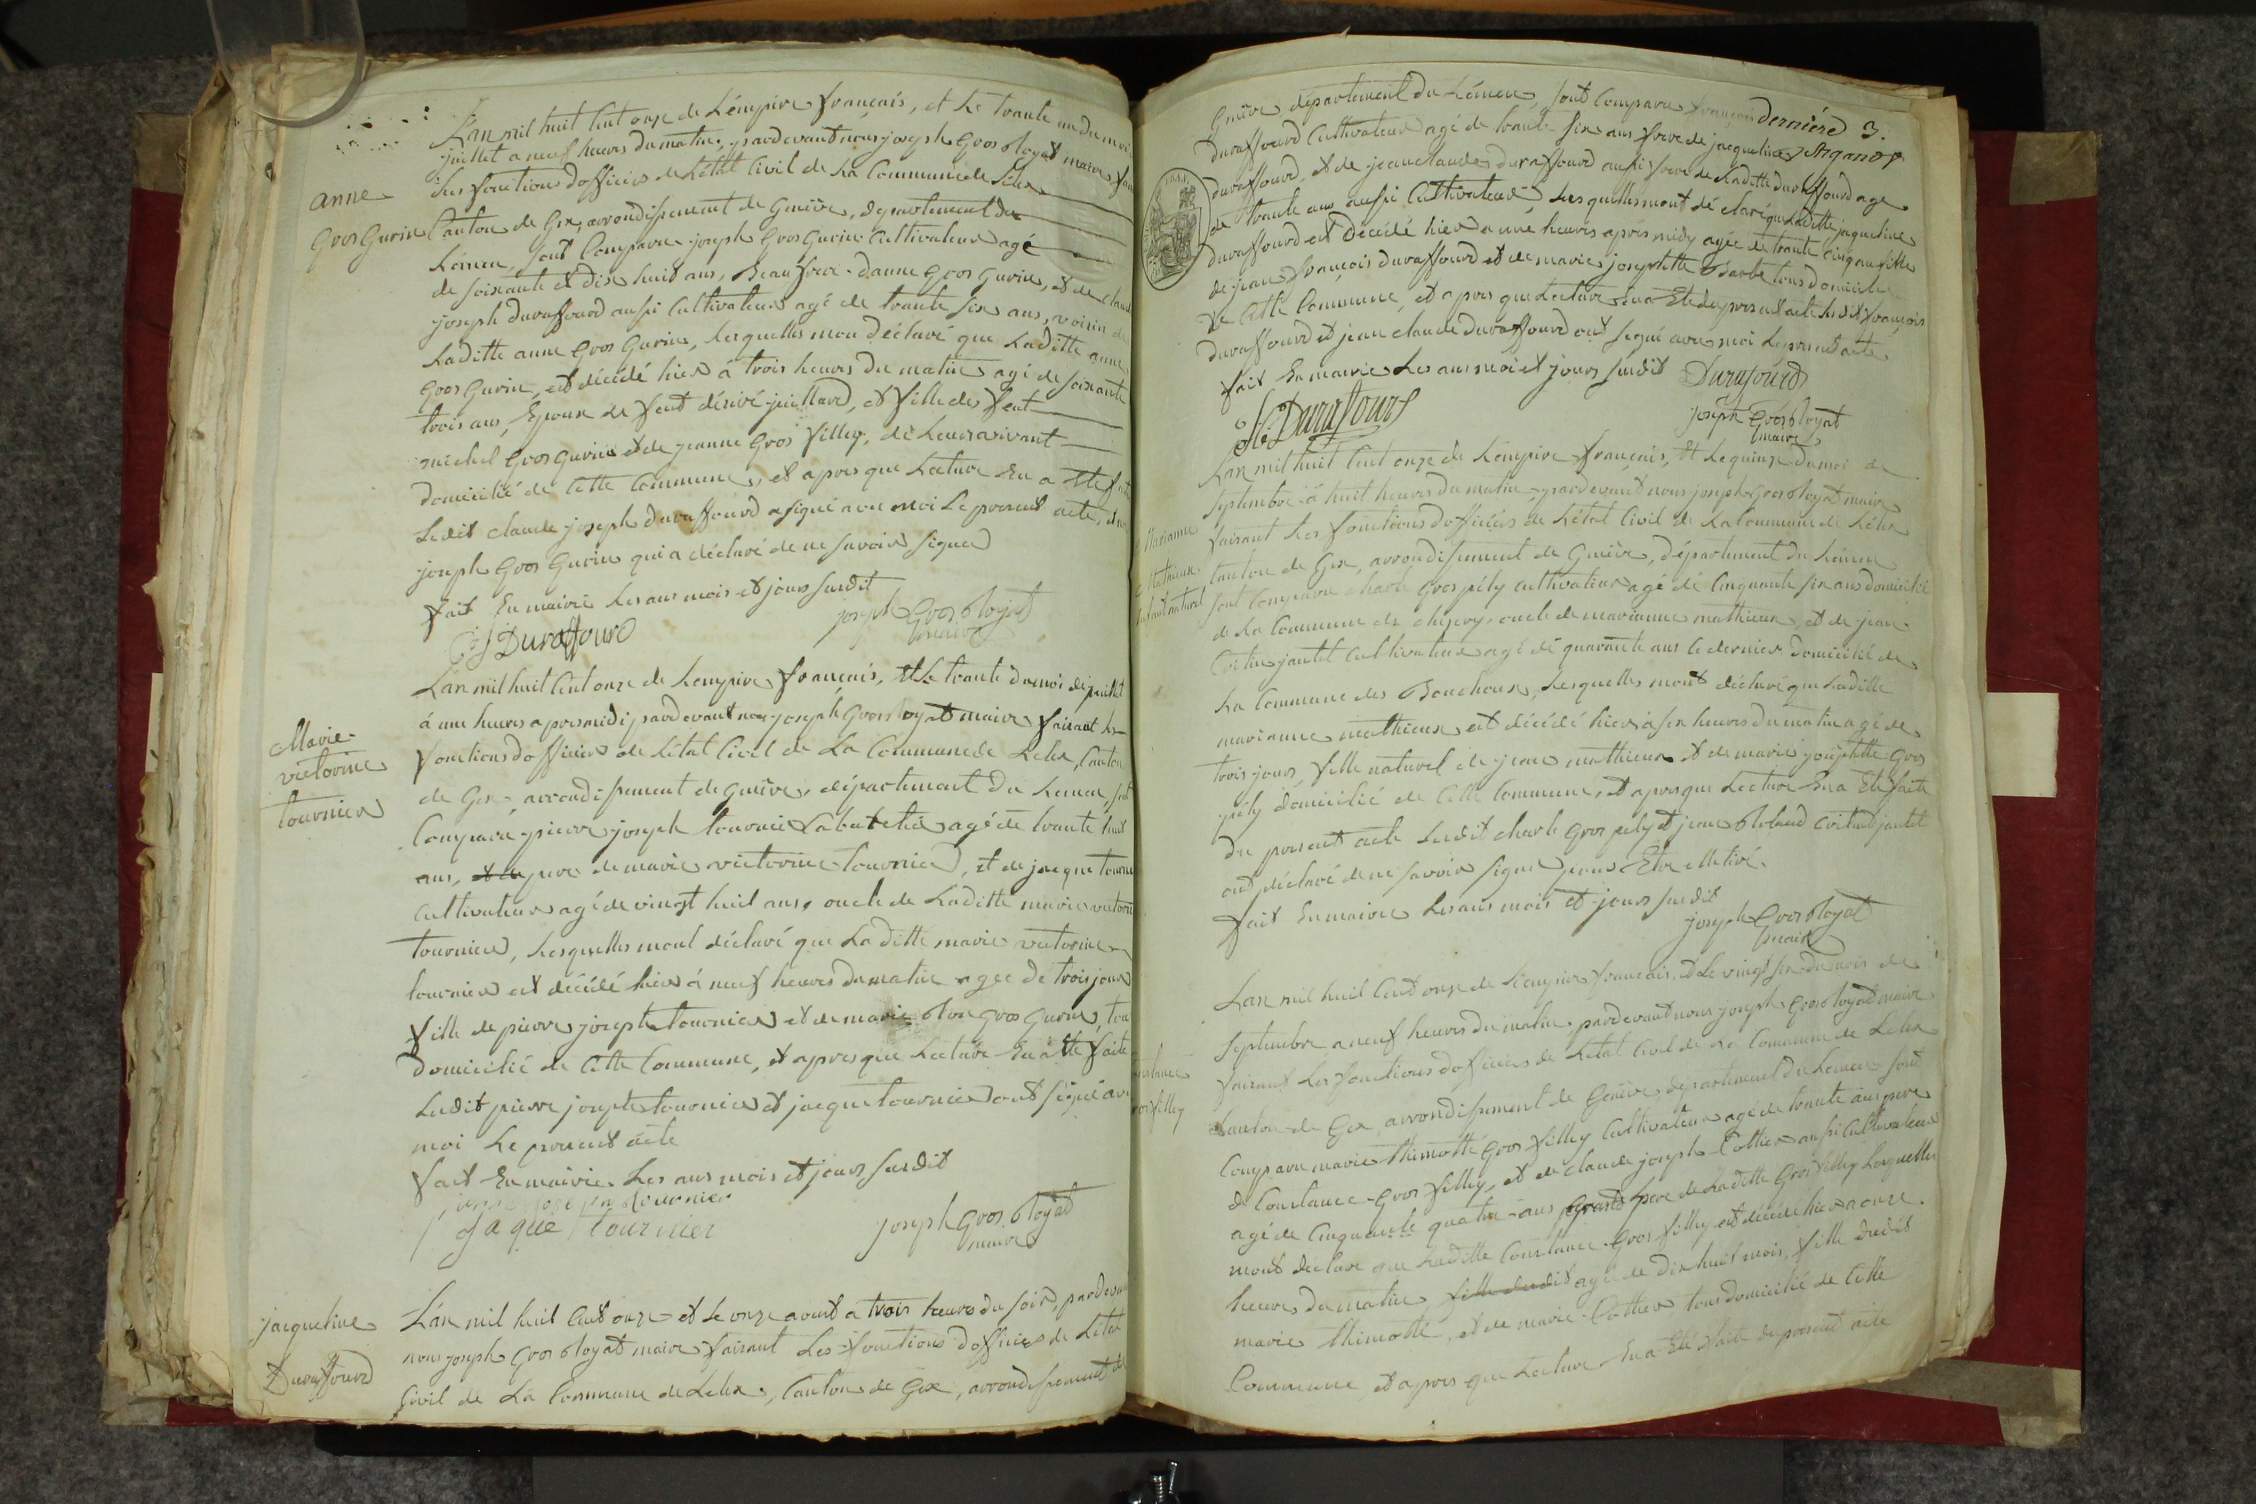 anne
Gros Gurin
L'an mil huit Cent onze de L'émpire français, et Le trante un du moi
juillet a neuf heures du matin, pardevant nous joseph Gros Royat maire
Les fonctions d'officier de L'état Civil de La Commune de Lélex
Canton de Gex, arrondissement de Genève, département du
Léman, sont Comparu joseph Gros Gurin Cultivateur agé
de soixante et dix huit ans, Beau frere d'anne Gros Gurin, et de claude
joseph duraffourd aussi Cultivateur agé de trante six ans, voisin de
Laditte anne Gros Gurin, Lesquelles mon déclaré que Laditte anne
Gros Gurin est décédé hier à trois heures du matin agé de soixante
trois ans, Epouse de feut désiré juillard, et fille des feut
michel Gros Gurin et de jeanne Gros fillex, de Leurs vivant
domicilié de Cette Commune, et apres que Lecture En a Eté faite
Ledit claude joseph duraffourd a signé avec moi Le present acte,
joseph Gros Gurin qui a déclaré de ne savoir signer
fait En mairie Les ans mois et jours susdit
joseph Gros Royat
maire
Duraffourd
Marie
victorine
tournier
L'an mil huit Cent onze de L'empire français, Et Le trante du mois de juillet
á une heures apres midi pardevant nous joseph Gros Royat maire faisant Les
fonctions d'officier de L'état Civil de La Commune de Lelex, Canton
de Gex, arrondissement de Genève, département du Leman, sont
Comparu pierre joseph tournier agé de trante huit
ans, pere de marie victorine tournier, et de jacque tournier
Cultivateur agé de vingt huit ans, oncle de Laditte marie victorine
tournier, Lesquelles mont déclaré que Laditte marie victorine
tournier est décédé hier á neuf heures du matin agée de trois jours
fille de pierre joseph tournier et de marie Gros Gurin, tou
domicilié de Cette Commune, et apres que Lecture En a Eté faite
Ledit pierre joseph tournier et jacque tournier ont signé avec
moi Le present acte
fait En mairie Les ans mois et jours susdit
pierre joseph tournier
Jaque tournier
joseph Gros Royat
maire
jacqueline
Duraffourd
L'an mil huit Cent onze et Le onze aout a trois heures du soir, pardevant
nous joseph Gros Royat maire faisant Les fonctions d'officier de L'état
Civil de La Commune de Lelex, Canton de Gex, arrondissement de
derniére 3.
Genêve département du Léman, sont Comparu françois
duraffourd Cultivateur agé de trante six ans frere de jacqueline
duraffourd, et de jean claude duraffourd aussi frere de Laditte duraffourd age
de trante ans aussi Cultivateur, Lesquelles mont déclaré que Laditte jacqueline
duraffourd est décédé hier a une heures après midy agée de trante cinq ans fille
de jean françois duraffourd et de marie josephtte Barbe tous domicilié
de Cette Commune, et apres que Lecture En a Eté du present acte Lesdit françois
duraffourd et jean claude duraffourd ont signé avec moi Le present acte
fait En mairie Les ans moi et jours susdit
Durafourd
Duraffourd
joseph Gros Royat
maire
Marianne
Mathieux
Enfant naturel
L'an mil huit Cent onze de L'émpire français, Et Le quinze du moi de
septembre á huit heures du matin pardevant nous joseph Gros Royat maire
faisant Les fonctions d'officiers de L'état Civil de La Commune de Lélex
Canton de Gex, arrondissement de Genève, département du Léman
sont Comparu charle Gros pély Cultivateur agé de Cinquante six ans domicilié
de La Commune de chésery oncle de marianne mathieux, et de jean
jantet Cultivateur agé de quarante ans Ce dernier domicilié de
La Commune des Bouchoux, Lesquelles mont déclaré que Laditte
marianne mathieux est décédé hier à six heures du matin agé de
trois jours, fille naturel de jean mathieux et de marie josephtte Gros
pély domicilié de Cette Commune, et apres que Lecture En a Eté faite
du present acte Ledit charle Gros pely et jean jantet
ont déclaré de ne savoir signer
fait En mairie Les ans mois et jours susdit
joseph Gros Royat
maire
L'an mil huit Cent onze de L'empire français, et Le vingt six du mois de
septembre a neuf heures du matin pardevant nous joseph Gros Royat maire
faisant Les fonctions d'officier de L'état Civil de La Commune de Lelex
Canton de Gex, arrondissement de Genève département du Leman sont
Comparu marie thimotté Gros fillex Cultivateur agé de trante ans pere
de Constance Gros fillex, et de claude joseph Cottier aussi Cultivateur
agé de Cinquante quatre ans grand pere de Laditte Gros fillex Lesquelles
mont déclaré que Laditte Constance Gros fillex est décédé hier a onze
heures du matin, fille dudit agée de dix huit mois, fille dudit
marie thimotté, et de marie Cottier, tous domicilié de Cette
Commune et apres que Lecture En a Eté faite du present acte